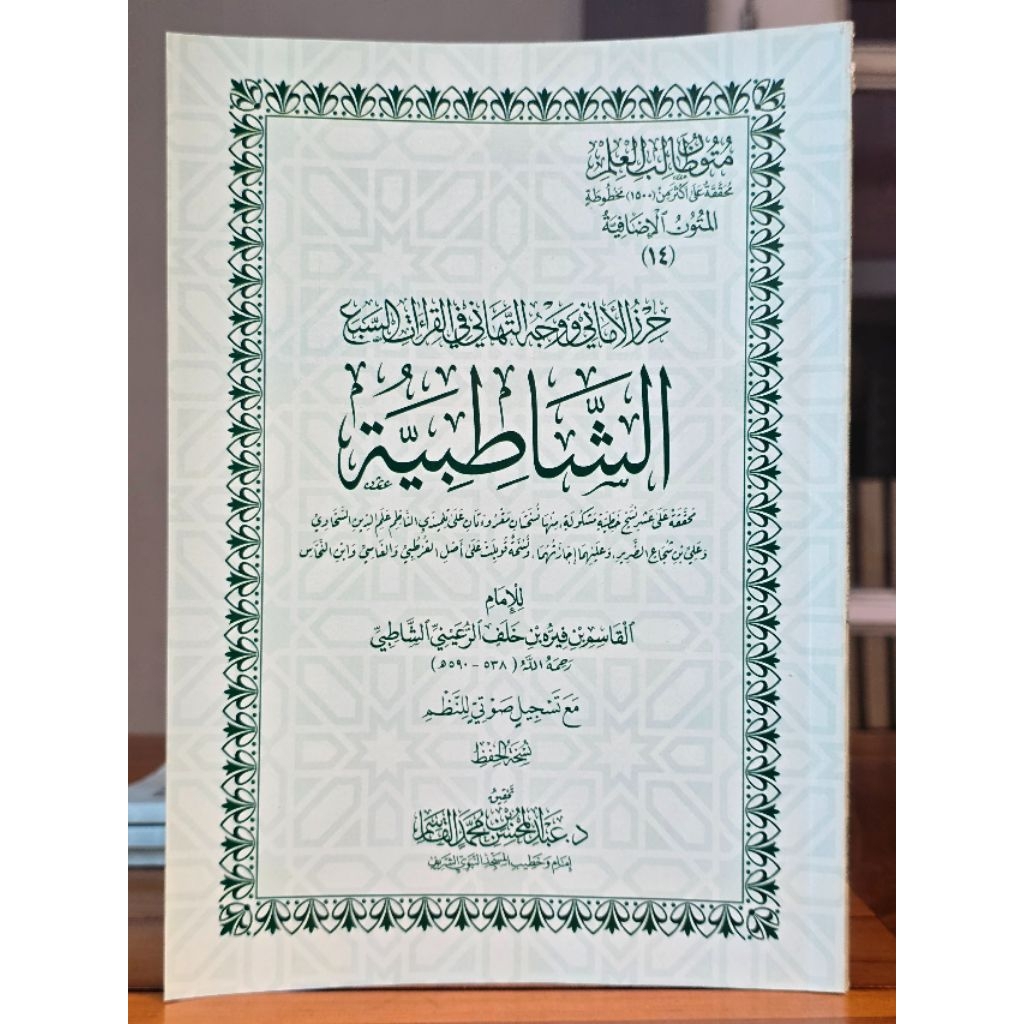 مُتُونُ طَالِبِ العِلْمِ
مُحَقَّقَةٌ عَلَى أَكْثَرَ مِنْ (١٥٠٠) مَخْطُوطَةٍ
المُتُونُ الْإِضَافِيَّةُ
(١٤)
حِرْزُ الأَمَانِي وَوَجْهُ التَّهَانِي فِي القِرَاءَاتِ السَّبْعِ
الشَّاطِبِيَّةُ
مُحَقَّقَةٌ عَلَى عَشْرِ نُسَخٍ خَطِّيَّةٍ مَشْكُولَةٍ، مِنْهَا نُسْخَتَانِ مَقْرُوءَتَانِ عَلَى تِلْمِيذَيِ النَّاظِمِ عَلَمِ الدِّينِ السَّخَاوِيِّ
وَعَلِيِّ بْنِ شُجَاعٍ الضَّرِيرِ، وَعَلَيْهِمَا إِجَازَتُهُمَا، وَنُسْخَةٌ قُوبِلَتْ عَلَى أَصْلِ القُرْطُبِيِّ وَالفَاسِيِّ وَابْنِ النَّحَّاسِ
لِلْإِمَامِ
الْقَاسِمِ بْنِ فِيرُّه بْنِ خَلَفٍ الرُّعَيْنِيِّ الشَّاطِبِيِّ
رَحِمَهُ اللَّهُ (٥٣٨ - ٥٩٠هـ)
مَعَ تَسْجِيلٍ صَوْتِيٍّ لِلنَّظْمِ
نُسْخَةُ الحِفْظِ
تَحْقِيقُ
د. عَبْدِ المُحْسِنِ بْنِ مُحَمَّدٍ القَاسِمِ
إِمَامِ وَخَطِيبِ المَسْجِدِ النَّبَوِيِّ الشَّرِيفِ